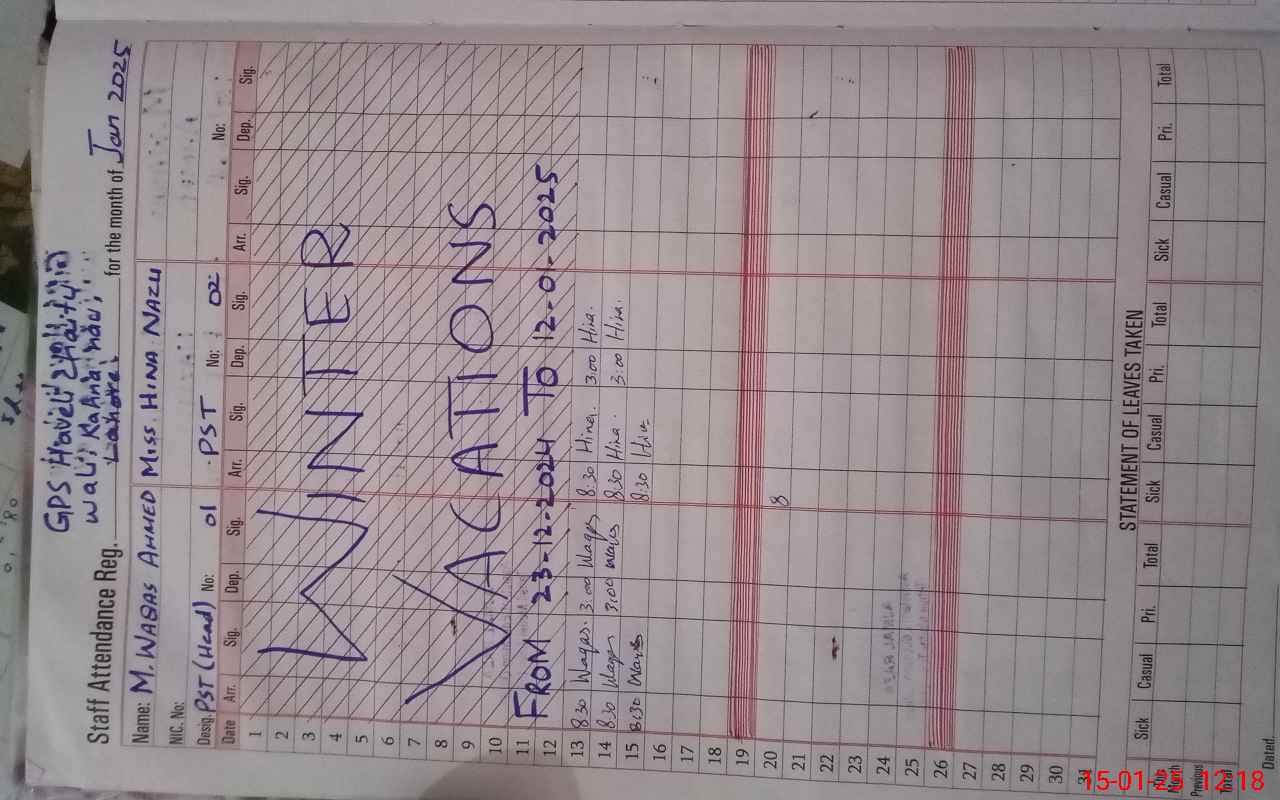 GPS Haveli
Wali, Kahna nau,
Lahore.
Staff Attendance Reg. for the month of Jan 2025
Name: M. WAQAS AHMED MISS. HINA NAZLI
NIC. No:
Desig. PST (Head) No: 01 PST No: 02 No:
Date Arr. Sig. Dep. Sig. Arr. Sig. Dep. Sig. Arr. Sig. Dep. Sig.
1
2
3 WINTER
4
5
6
7
8
9 VACATIONS
10
11
12 FROM 23-12-2024 TO 12-01-2025
13 8:30 Waqas. 3:00 Waqas 8:30 Hina. 3:00 Hina.
14 8:30 Waqas 3:00 Waqas 8:30 Hina. 3:00 Hina.
15 8:30 Waqas 8:30 Hina
16
17
18
19
20 8
21
22
23
24
25
26
27
28
29
30
31
STATEMENT OF LEAVES TAKEN
Sick Casual Pri. Total Sick Casual Pri. Total Sick Casual Pri. Total
Month
Previous
Total
Dated.
15-01-25 12:18